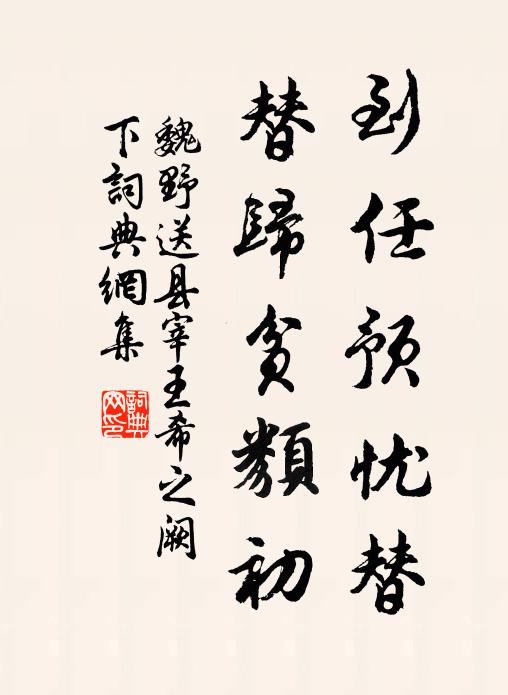 到任预忧替
替歸貧類初
魏野送县宰王希之阙
下詞典網集
詞典
网印